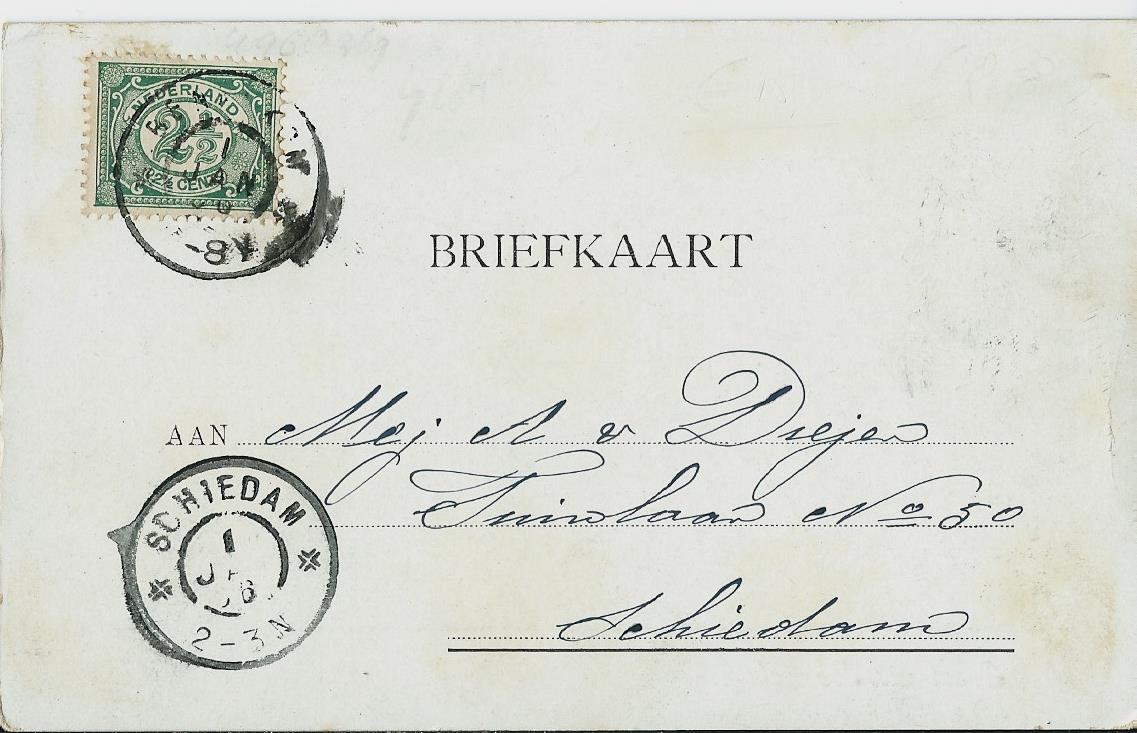 NEDERLAND
2½
2½ CENT
1 JAN
8V
BRIEFKAART
AAN Mej A v Diejen
Tuinlaan No 50
Schiedam
SCHIEDAM
1
06
2-3N